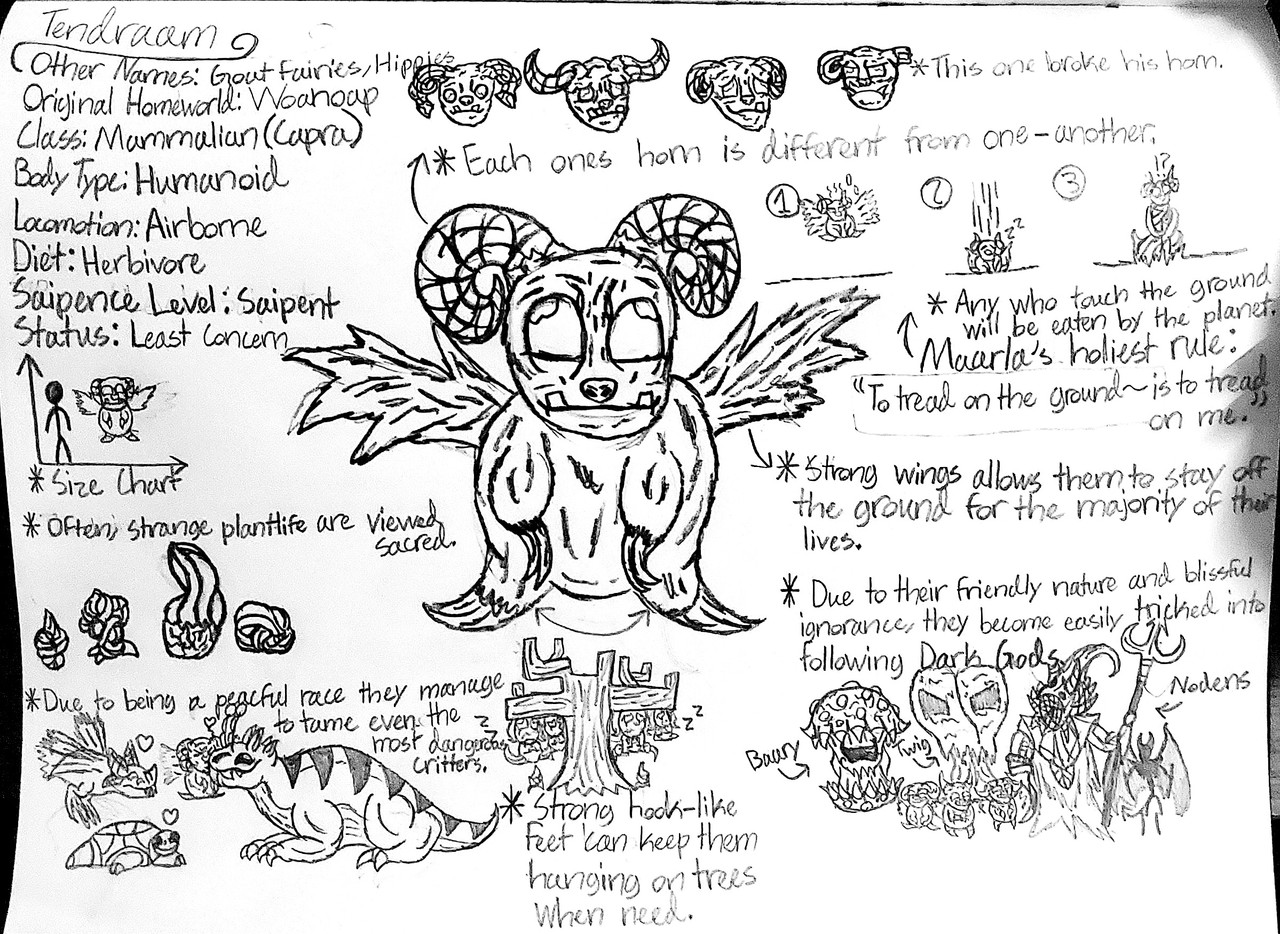 Tendraam
Other Names: Gout Fairies/Hippies
Original Homeworld: Woahoap
Class: Mammalian (Capra)
Body Type: Humanoid
Locomotion: Airborne
Diet: Herbivore
Saipence Level: Saipent
Status: Least Concern
* Size Chart
* Often, strange plantlife are viewed
sacred.
* Due to being a peacful race they manage
to tame even the
most dangerous
critters.
* This one broke his horn.
* Each ones horn is different from one-another.
1
2
zz
3
!?
* Any who touch the ground
will be eaten by the planet.
Maarla's holiest rule:
"To tread on the ground~ is to tread
on me."
* Strong wings allows them to stay off
the ground for the majority of their
lives.
* Due to their friendly nature and blissful
ignorance, they become easily tricked into
following Dark Gods.
Nodens
Twig
zz
zz
* Strong hook-like
feet can keep them
hanging on trees
when need.